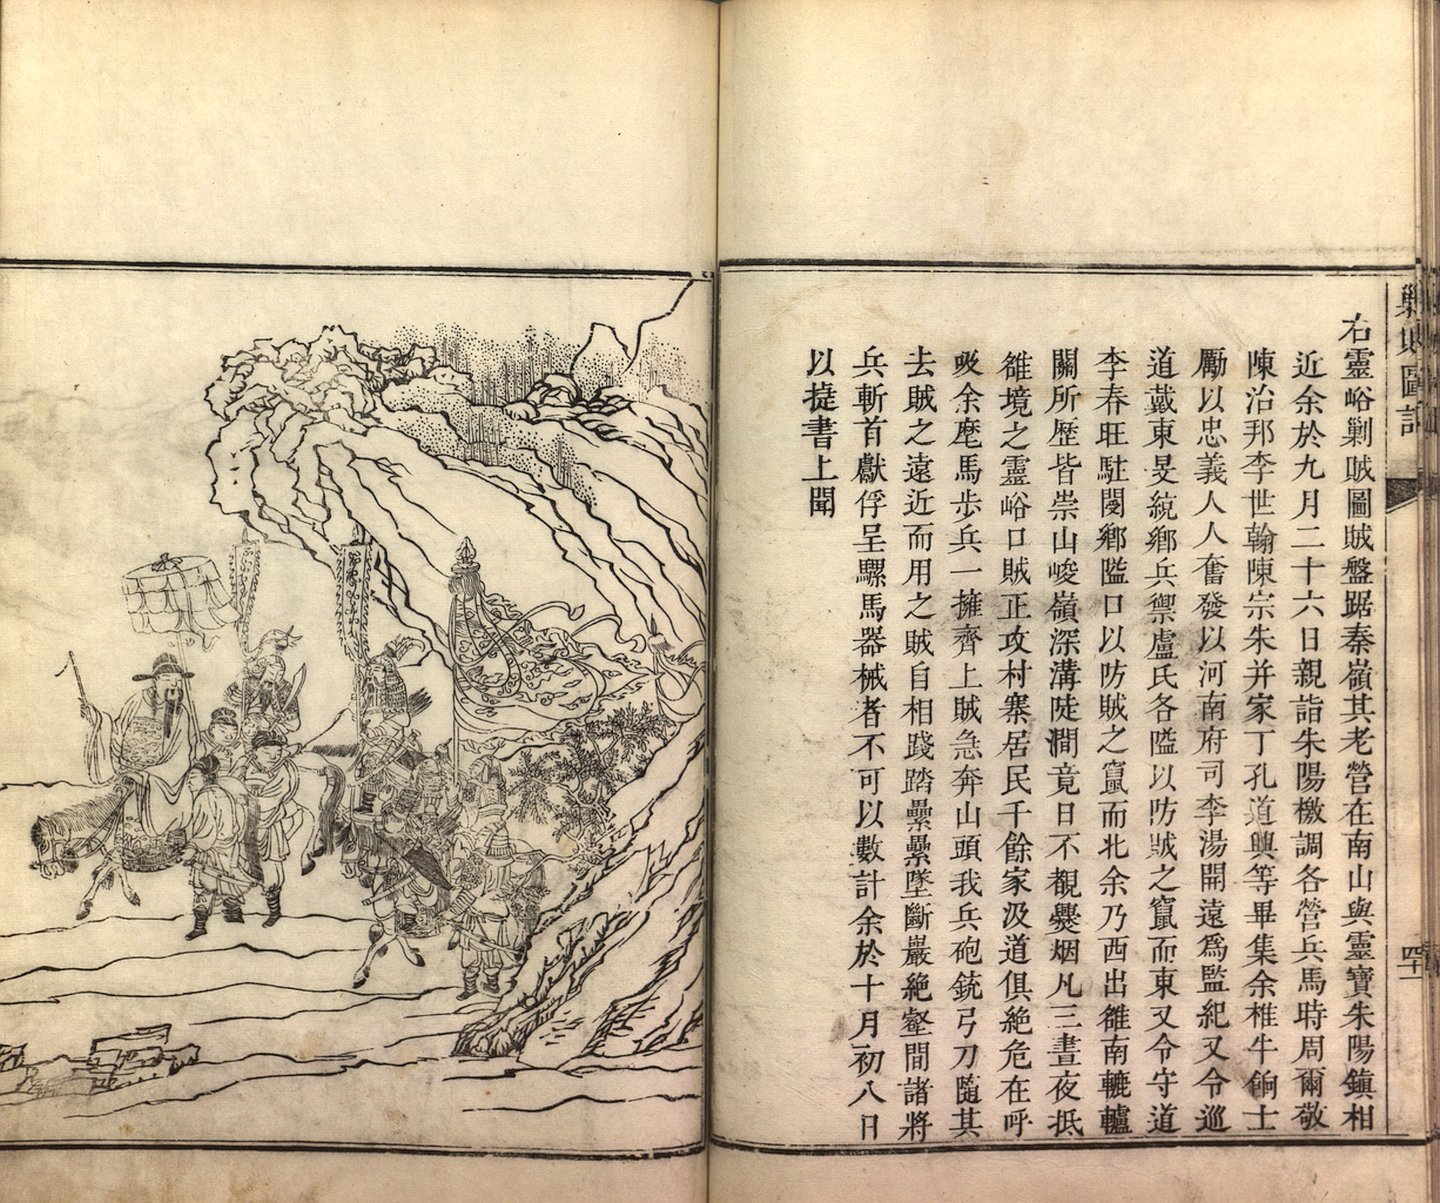 剿賊圖記
右靈峪剿賊圖賊盤踞秦嶺其老營在南山與靈寶朱陽鎮相
近余於九月二十六日親詣朱陽檄調各營兵馬時周爾敬
陳治邦李世翰陳宗朱并家丁孔道興等畢集余椎牛餉士
勵以忠義人人奮發以河南府司李湯開遠為監紀又令巡
道戴東旻統鄉兵禦盧氏各隘以防賊之竄而東又令守道
李春旺駐閿鄉隘口以防賊之竄而北余乃西出雒南轆轤
關所歷皆崇山峻嶺深溝陡澗竟日不覩爨烟凡三晝夜抵
雒境之靈峪口賊正攻村寨居民千餘家汲道俱絕危在呼
吸余麾馬步兵一擁齊上賊急奔山頭我兵砲銃弓刀隨其
去賊之遠近而用之賊自相踐踏纍纍墜斷巖絕壑間諸將
兵斬首獻俘呈騾馬器械者不可以數計余於十月初八日
以捷書上聞
四十